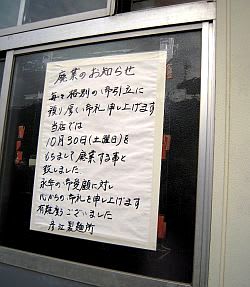 廃業のお知らせ
毎々格別の御引立に
預り厚く御礼申し上げます
当店では
10月30日(土曜日)を
もちまして廃業する事と
致しました
永年の御愛顧に対し
心からの御礼を申し上げます
有難うございました
彦江製麺所